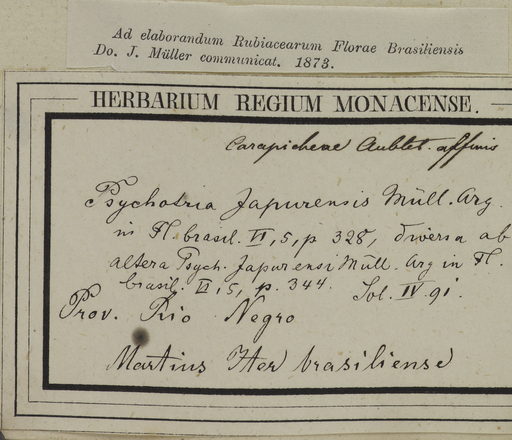 Ad elaborandum Rubiacearum Florae Brasiliensis
Do. J. Müller communicat. 1873.
HERBARIUM REGIUM MONACENSE.
Carapicheae Aublet. affinis
Psychotria Japurensis Müll. Arg.
in Fl. brasil. VI, 5, p 328, diversa ab
altera Psych. Japurensi Müll. Arg in Fl.
brasil. VI, 5, p. 344. Sol. IV 91.
Prov. Rio Negro
Martius Iter brasiliense